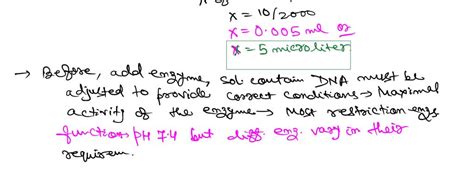 x = 10/2000
x = 0.005 ml or
x = 5 microliter
→ Before, add enzyme, sol. contain DNA must be
adjusted to provide correct conditions → Maximal
activity of the enzyme → Most restriction engs
function pH 7.4 but diff. eng. vary in their
requirem.